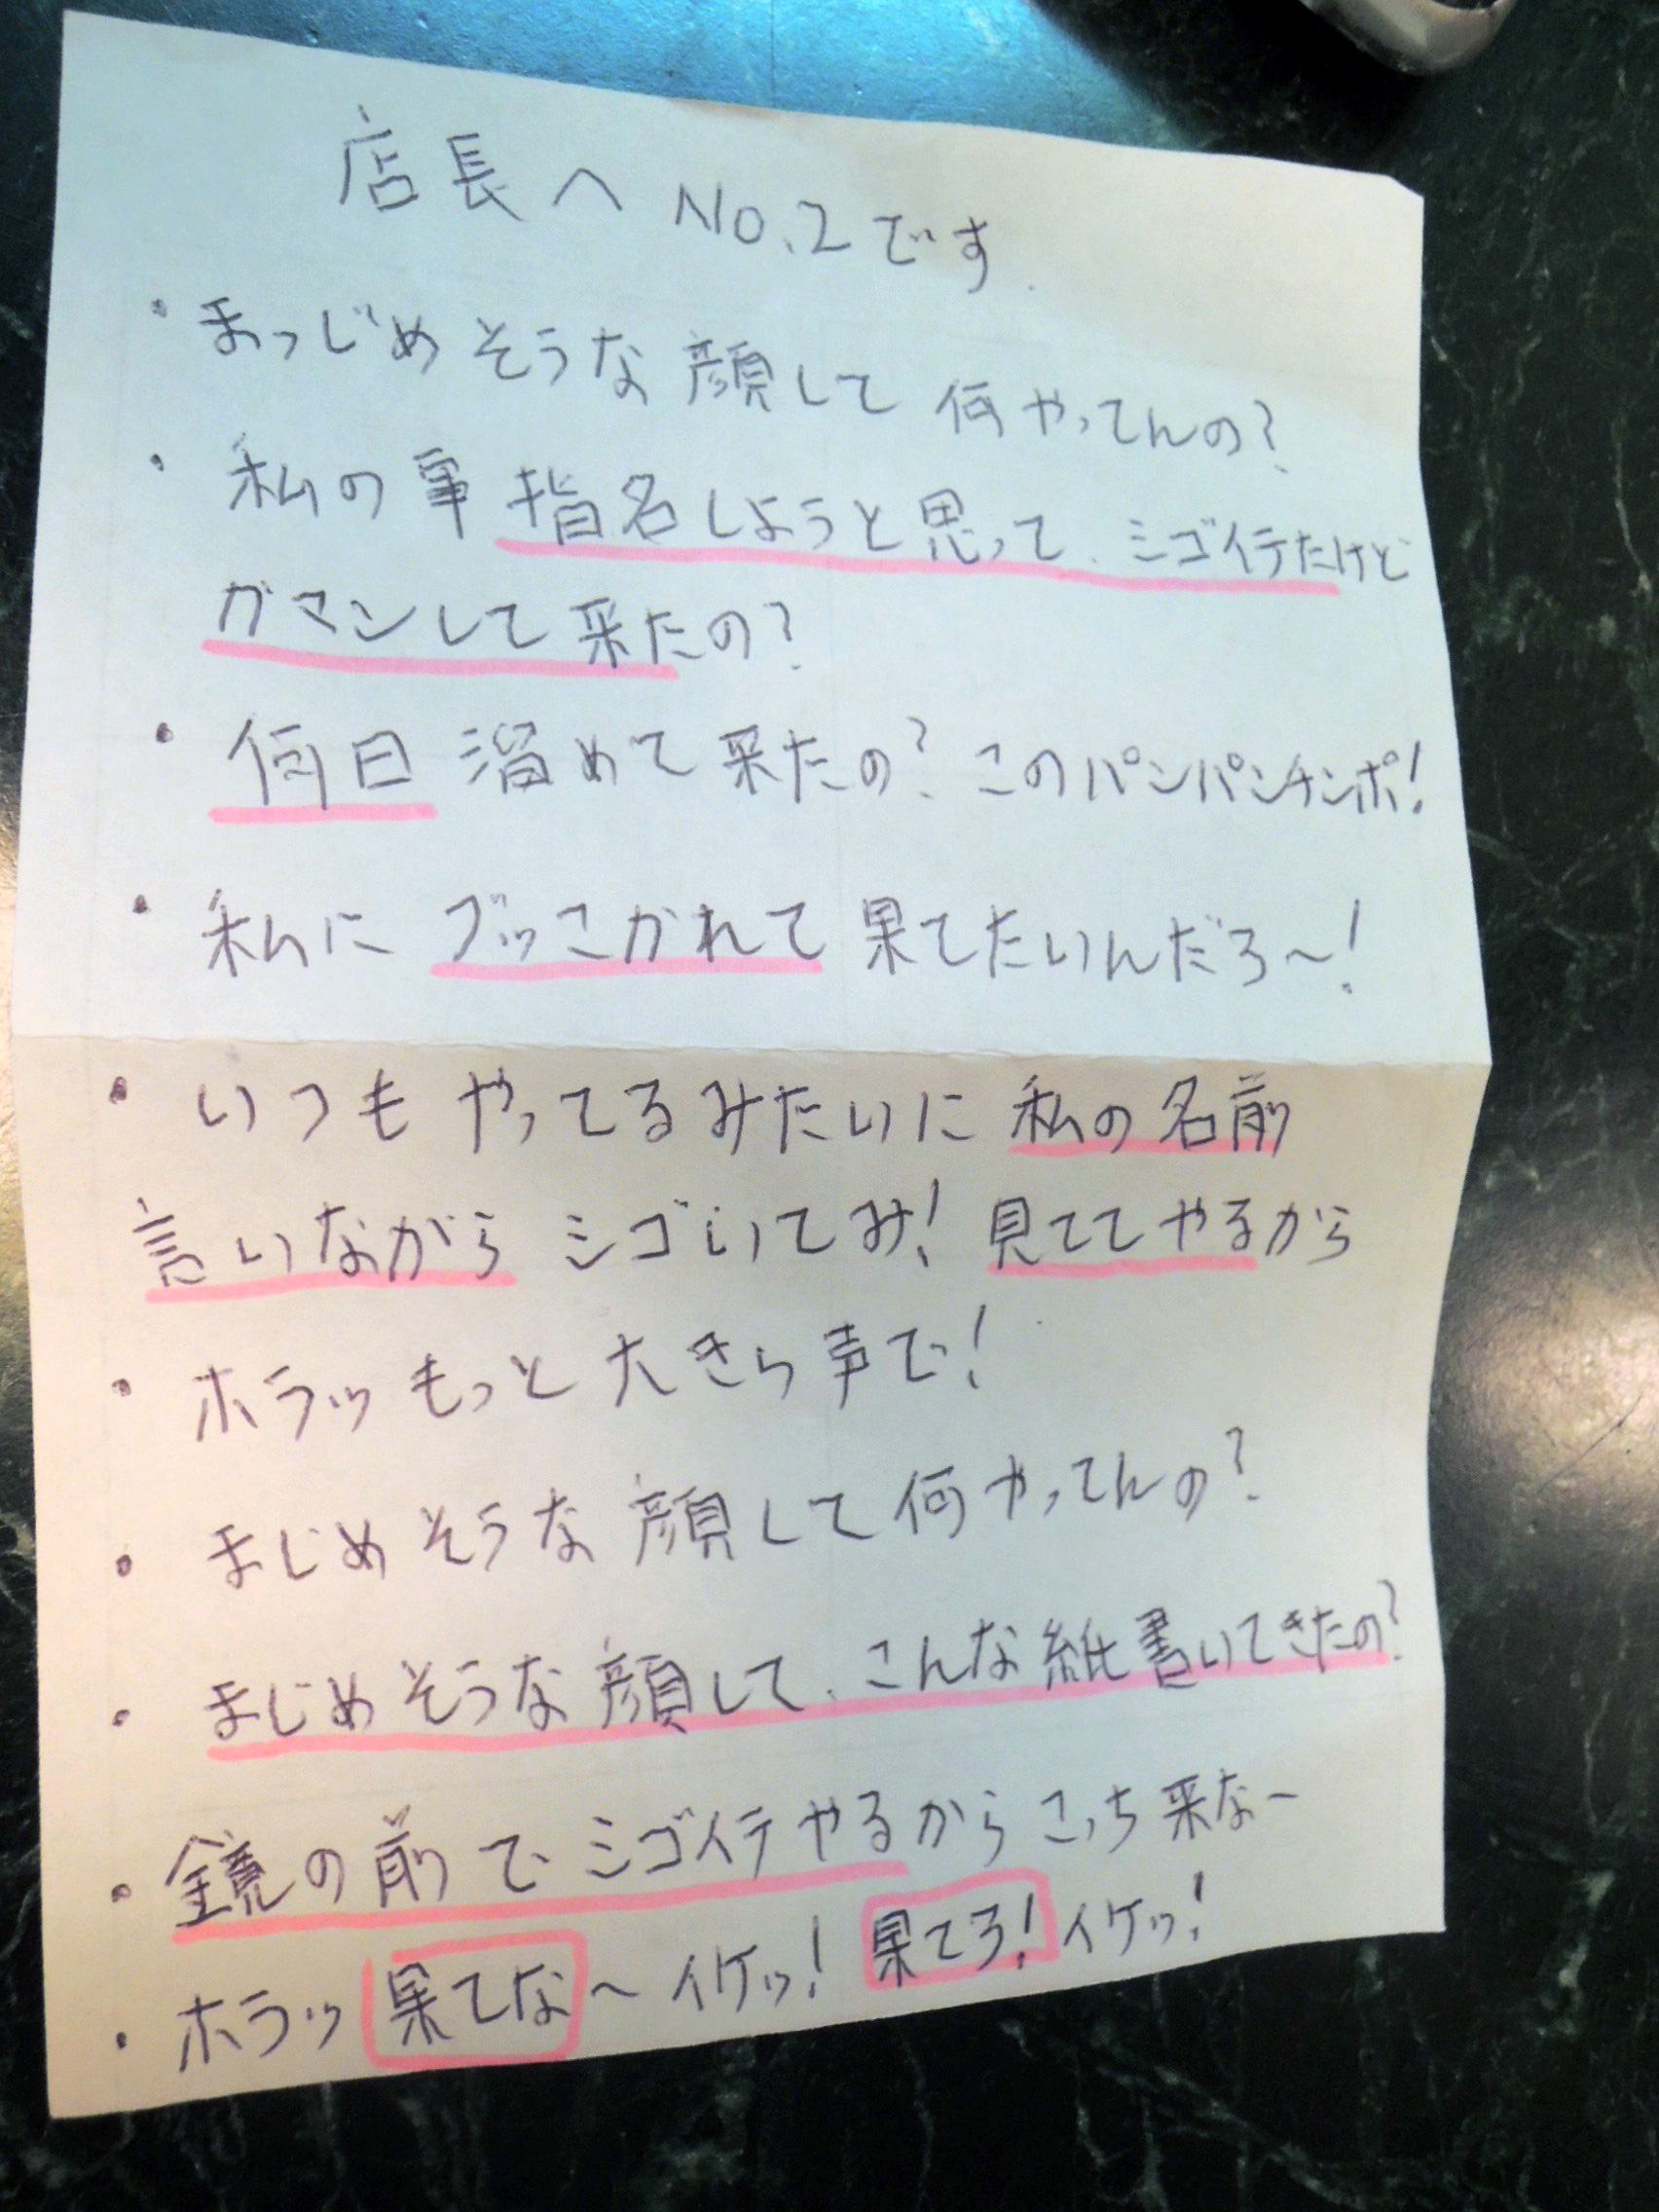 店長へ No.2です.
・まっじめそうな顔して何やってんの?
・私の事指名しようと思って、シゴイテたけど
ガマンして来たの?
・何日溜めて来たの?このパンパンチンポ!
・私にブッこかれて果てたいんだろ〜!
・いつもやってるみたいに私の名前
言いながらシゴいてみ!見ててやるから
・ホラッもっと大きら声で!
・まじめそうな顔して何やってんの?
・まじめそうな顔して、こんな紙書いてきたの?
・鏡の前でシゴイテやるからこっち来な〜
・ホラッ果てな〜イケッ!果てろ!イケッ!